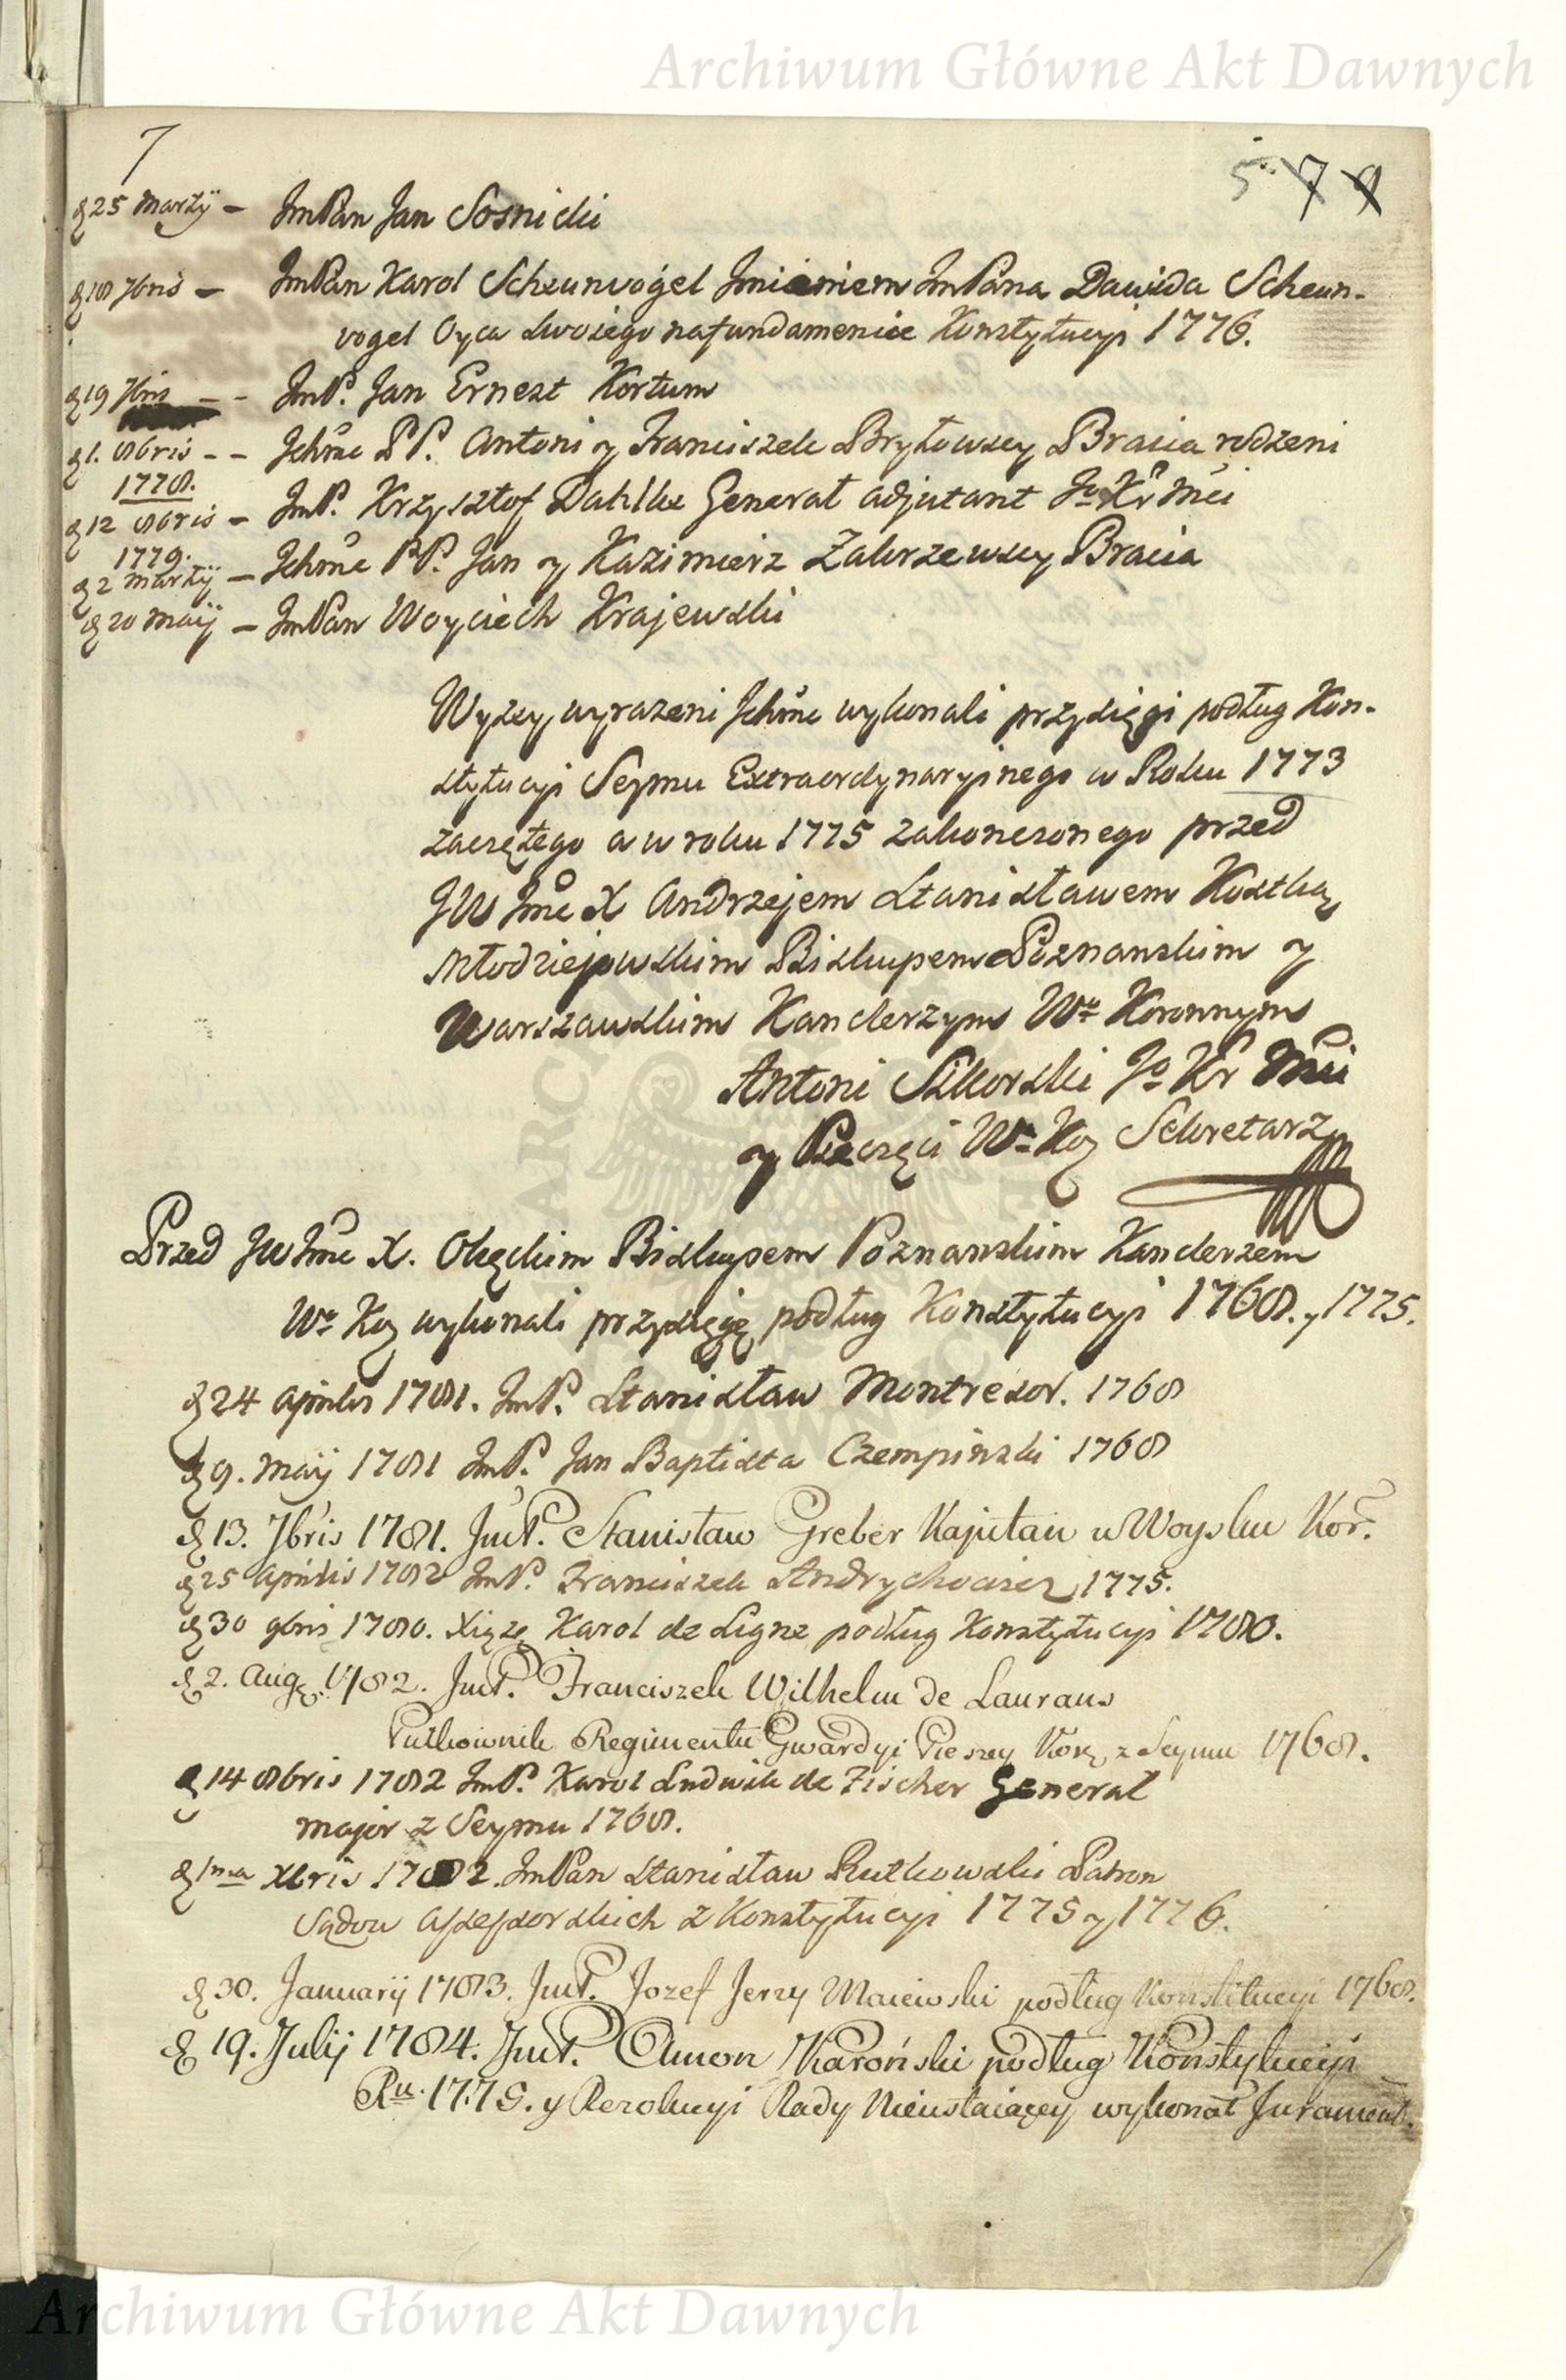 Archiwum Główne Akt Dawnych
7
5. 7 9
d 25 Martij – ImPan Jan Sosnicki
d 18 7bris – ImPan Karol Scheunvogel Imieniem ImPana Dawida Scheun-
vogel Oyca swoiego na fundamencie Konstytucyi 1776.
d 19 7bris – – ImP. Jan Ernest Kortum
d 1. 8bris – – Ichmc PP. Antoni y Franciszek Bryłowscy Bracia rodzeni
1778.
d 12 8bris – ImP. Krzysztof Dahlke Generał adjutant Jo Kr Mci
1779.
d 2 Martij – Ichmc PP. Jan y Kazimierz Zakrzewscy Bracia
d 20 Maij – ImPan Woyciech Krajewski
Wyzey wyrazeni Ichmc wykonali przysięgi podług Kon-
stytucyi Seymu Extraordynaryinego w Roku 1773
zaczętego a w roku 1775 zakonczonego przed
JW Imc X Andrzejem Stanisławem Kostką
Młodziejowskim Biskupem Poznanskim y
Warszawskim Kanclerzym Wo Koronnym
Antoni Sikorski Jo Kr Mci
y Pieczęci Wo Koy Sekretarz
Przed JW Imc X. Okęckim Biskupem Poznanskim Kanclerzem
Wo Koy wykonali przysięgę podług Konstytucyi 1768. y 1775.
d 24 Aprilis 1781. ImP. Stanisław Montresor. 1768
d 9. Maij 1781 ImP. Jan Baptista Czempiński 1768
d 13. 7bris 1781. ImP. Stanisław Greber Kapitan w Woysku Kor:
d 25 Aprilis 1782 ImP. Franciszek Andrychowicz 1775.
d 30 9bris 1780. Xiążę Karol de Ligne podług Konstytucyi 1780.
d 2. Aug. 1782. ImP. Franciszek Wilhelm de Laurans
Pułkownik Regimentu Gwardyi Pieszey Kor z Seymu 1768.
d 14 8bris 1782 ImP. Karol Ludwik de Fischer Generał
major z Seymu 1768.
d 1ma Xbris 1782. ImPan Stanisław Rutkowski Patron
Sądow Assessorskich z Konstytucyi 1775 y 1776.
d 30. Januarij 1783. ImP. Jozef Jerzy Maiewski podług Konstitucyi 1768.
d 19. Julij 1784. ImP. Karoński podług Konstytucyi
Ru. 1775. y Rezolucyi Rady Nieustaiącey wykonał Jurament.
Archiwum Główne Akt Dawnych